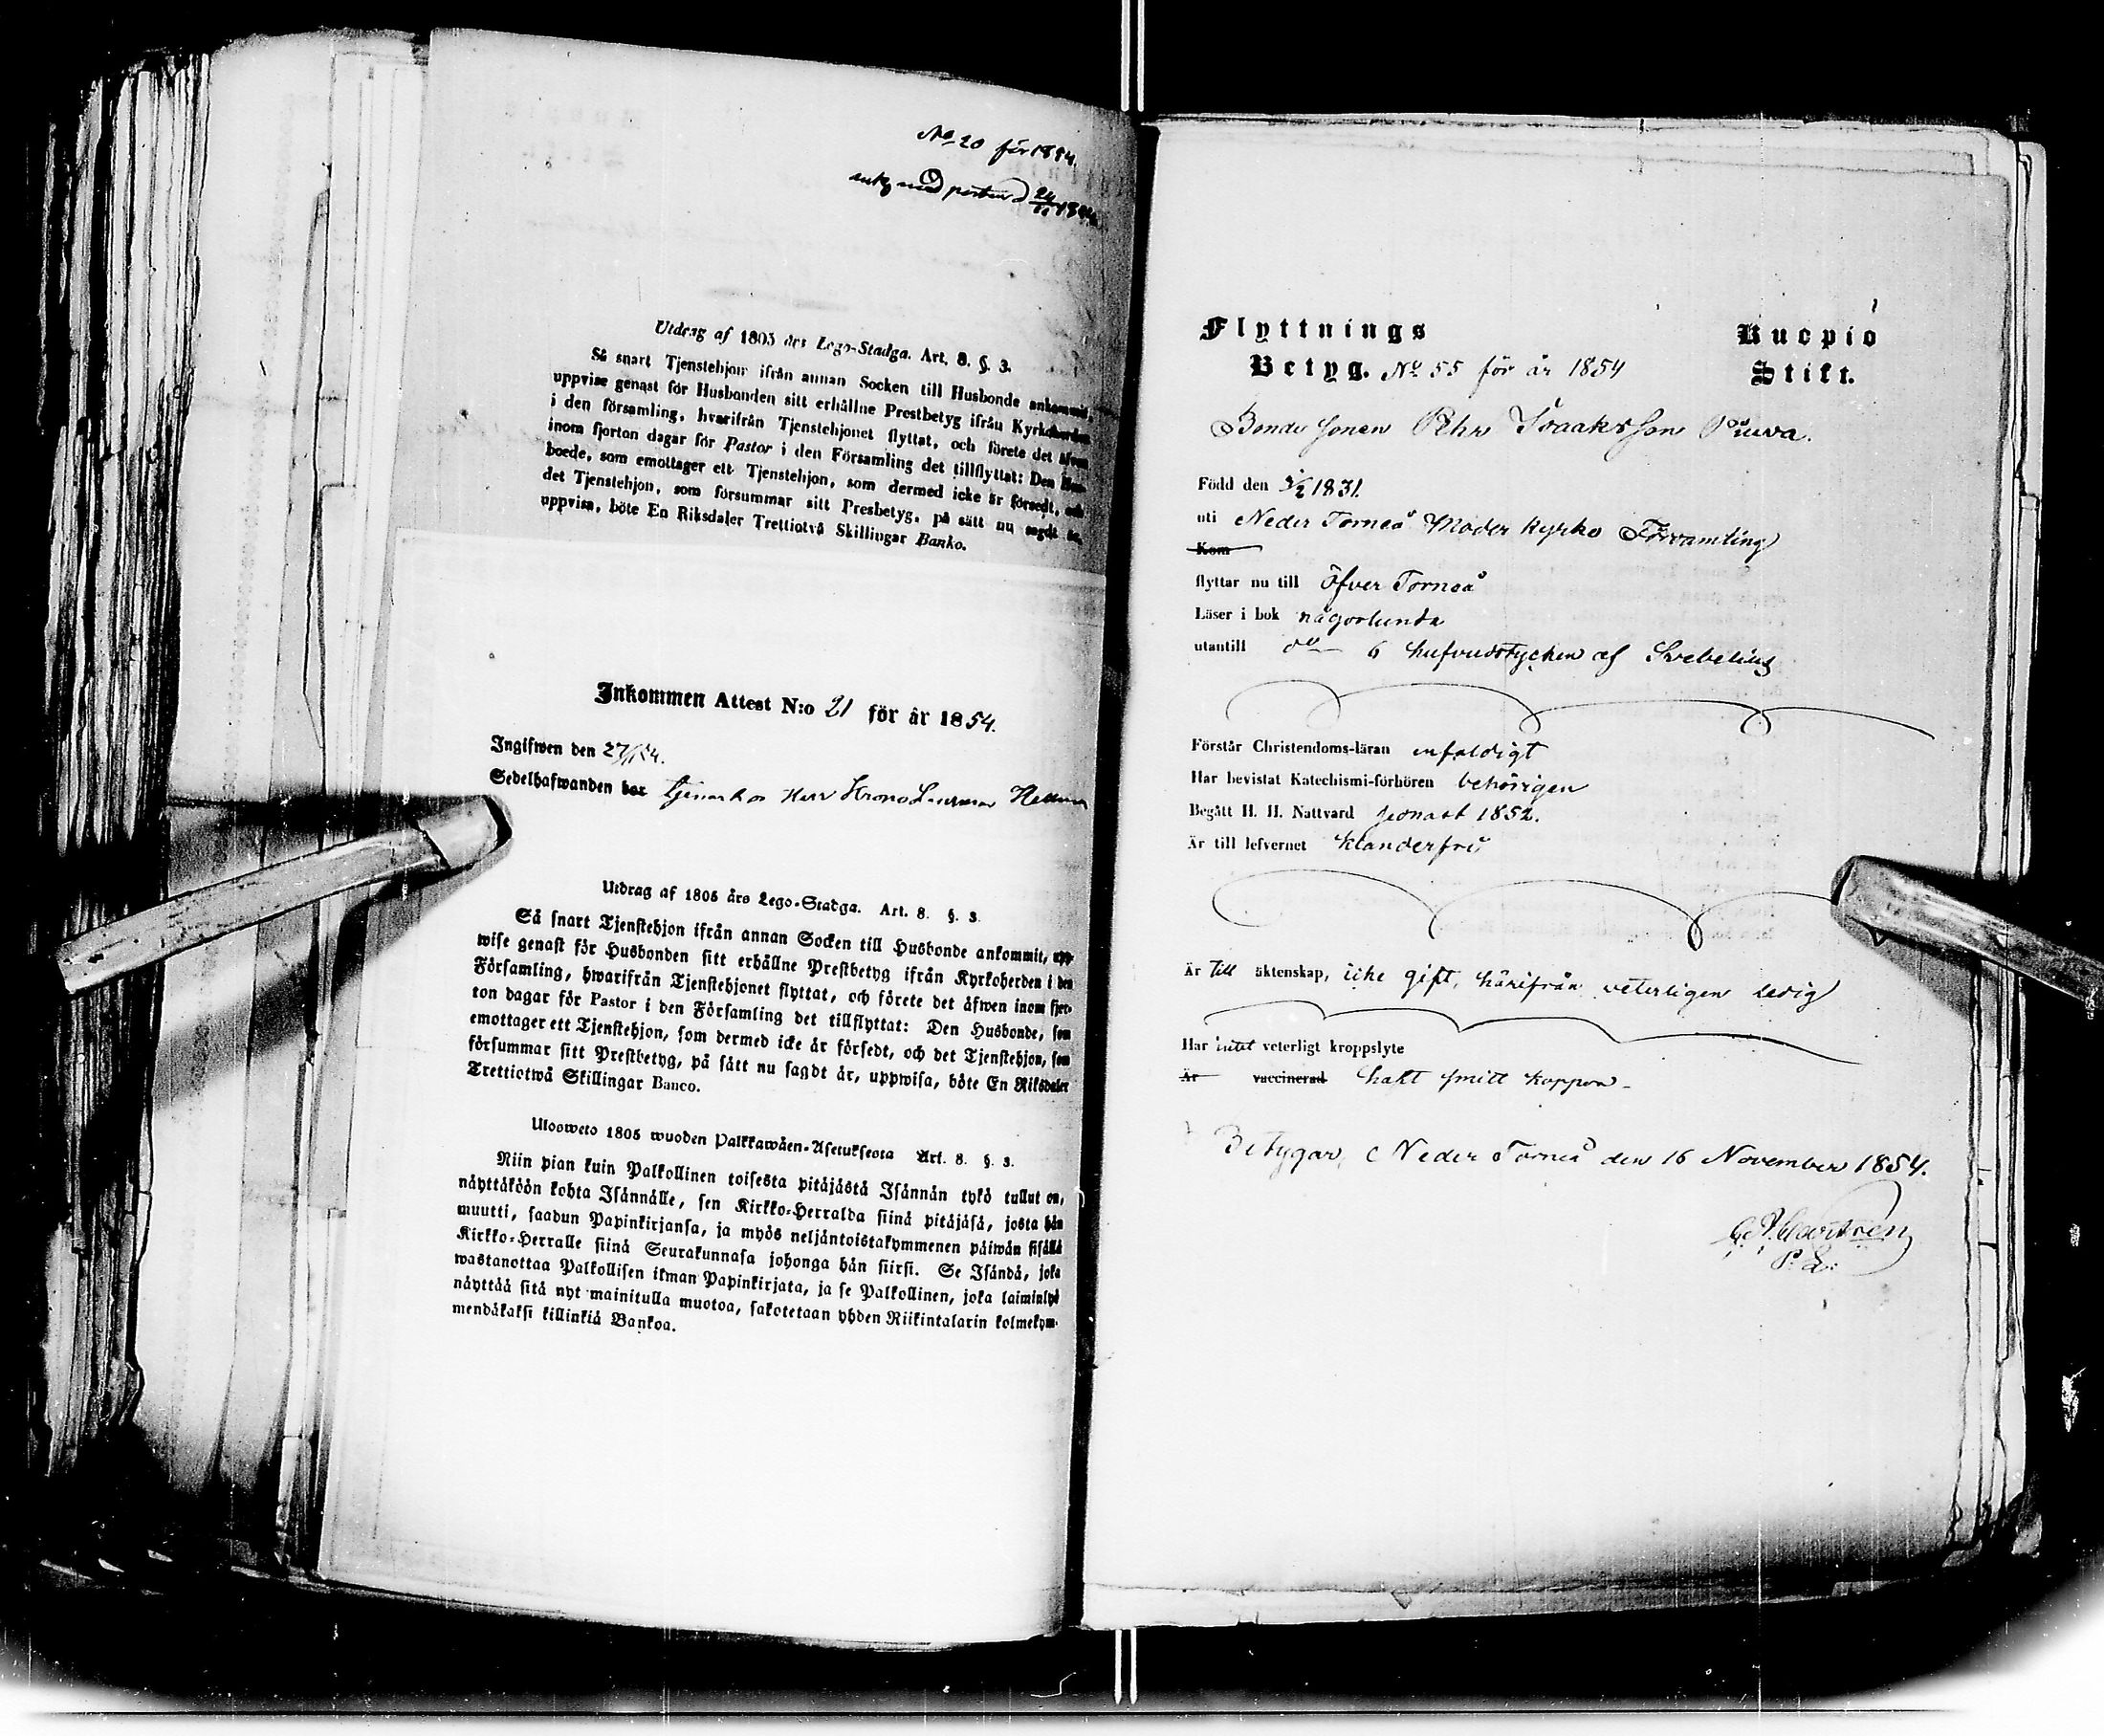 No 20 för 1854.
ank. med posten d 24/11 1854.
Utdrag af 1805 års Lego-Stadga. Art. 8. §. 3.
Så snart Tjenstehjon ifrån annan Socken till Husbonde ankommit,
uppvise genast för Husbonden sitt erhållne Prestbetyg ifrån Kyrkoherden
i den församling, hvarifrån Tjenstehjonet flyttat, och förete det äfven
inom fjorton dagar för Pastor i den Församling det tillflyttat: Den Hus-
boede, som emottager ett Tjenstehjon, som dermed icke är försedt, och
det Tjenstehjon, som försummar sitt Presbetyg, på sätt nu sagdt är,
uppvisa, böte En Riksdaler Trettiotvå Skillingar Banko.
Inkommen Attest N:o 21 för år 1854.
Ingifwen den 27/
Sedelhafwanden bor tjenar hos Herr Krono Länsman
Utdrag af 1805 års Lego-Stadga. Art. 8. §. 3.
Så snart Tjenstehjon ifrån annan Socken till Husbonde ankommit, upp-
wise genast för Husbonden sitt erhållne Prestbetyg ifrån Kyrkoherden i den
Församling, hwarifrån Tjenstehjonet flyttat, och förete det äfwen inom fjor-
ton dagar för Pastor i den Församling det tillflyttat: Den Husbonde, som
emottager ett Tjenstehjon, som dermed icke är försedt, och det Tjenstehjon, som
försummar sitt Prestbetyg, på sätt nu sagdt är, uppwisa, böte En Riksdaler
Trettiotwå Skillingar Banco.
Ulosweto 1805 wuoden Palkkawäen-Asetuksesta Art. 8. §. 3.
Niin pian kuin Palkollinen toisesta pitäjästä Isännän tykö tullut on,
näyttäköön kohta Isännälle, sen Kirkko-Herralda siinä pitäjäsä, josta hän
muutti, saadun Papinkirjansa, ja myös neljäntoistakymmenen päiwän sisällä
Kirkko-Herralle siinä Seurakunnasa johonga hän siirsi. Se Isändä, joka
wastanottaa Palkollisen ilman Papinkirjata, ja se Palkollinen, joka laiminlyö
näyttää sitä nyt mainitulla muotoa, sakotetaan yhden Riikintalarin kolmekym-
mendäkaksi killinkiä Bankoa.
Flyttnings Kuopio
Betyg. No 55 för år 1854 Stift.
Bonde sonen Pehr Isaaksson
Född den 5/2 1831.
uti Neder Torneå Moder kyrko Församling
Kom
flyttar nu till Öfver Torneå
Läser i bok någorlunda
utantill do 6 hufvudstycken af Svebelius
Förstår Christendoms-läran enfaldigt
Har bevistat Katechismi-förhören behörigen
Begått H. H. Nattvard senast 1852.
Är till lefvernet klanderfri
Är till äktenskap, icke gift, härifrån veterligen ledig
Har intet veterligt kroppslyte
Är vaccinerad haft smitt koppor
Betygar, Neder Torneå den 16 November 1854.